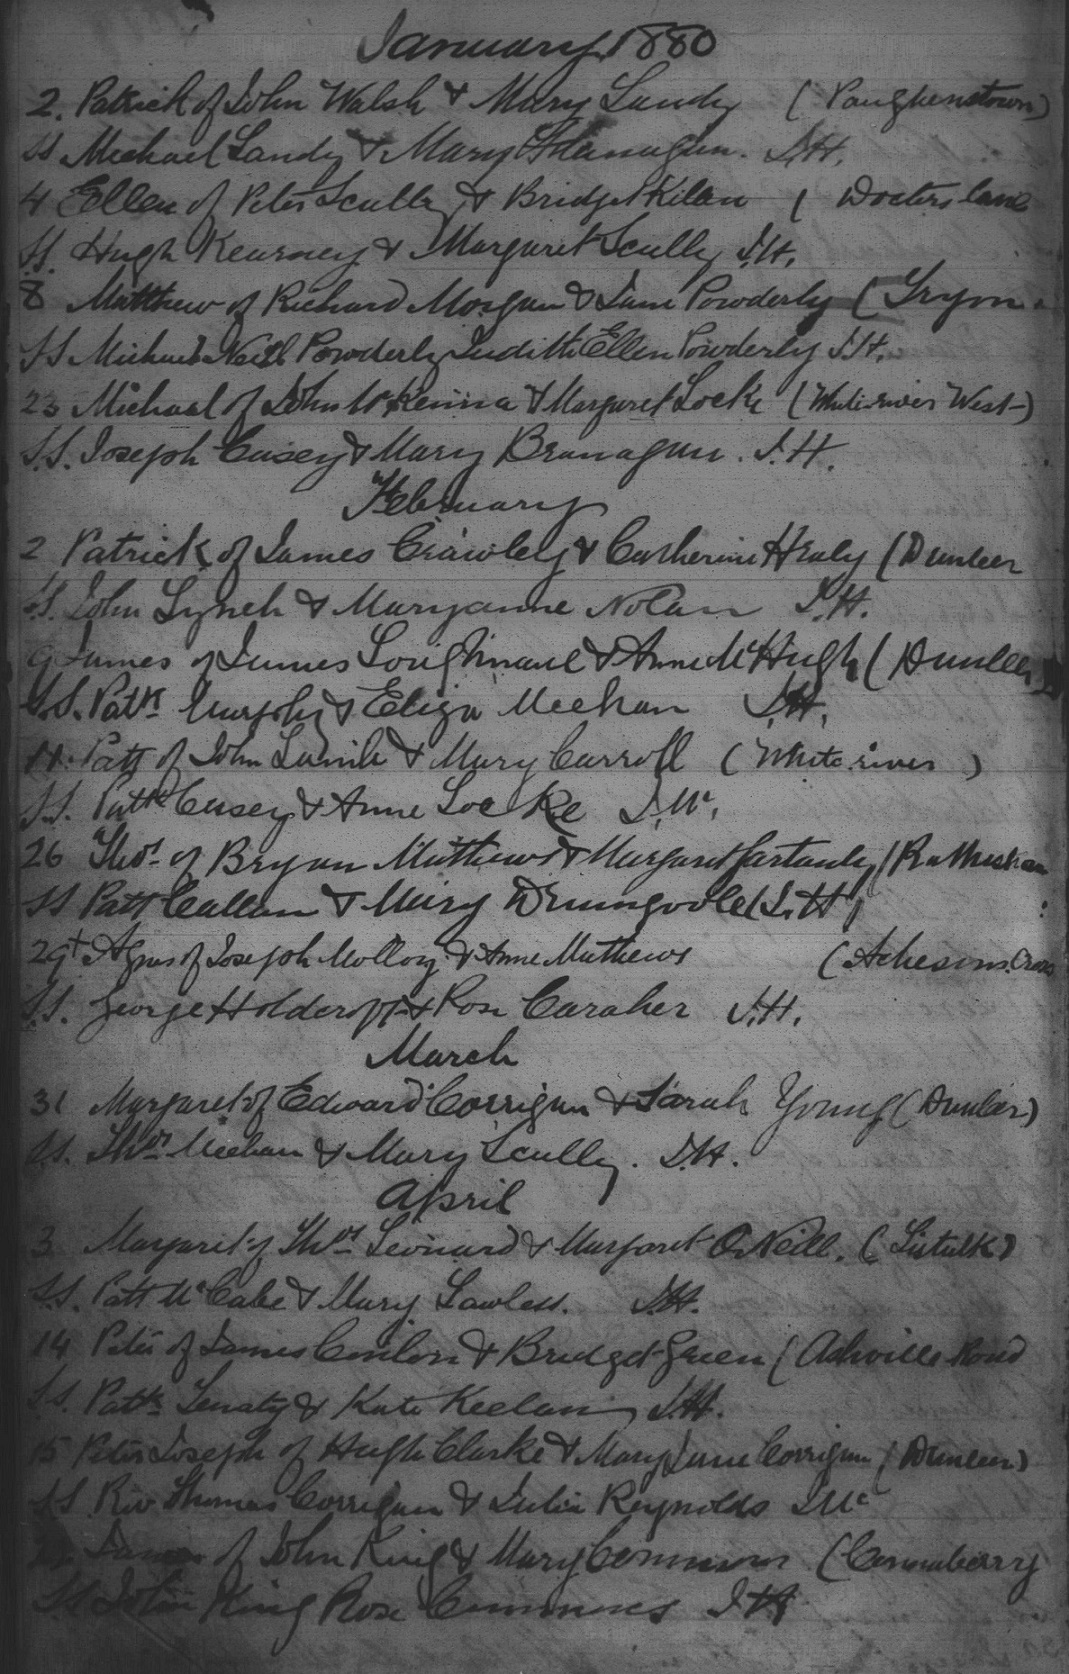 January 1880
2. Patrick of John Walsh & Mary Landy (Paughanstown)
SS Michael Landy & Mary Flanagan. J.H.
4 Ellen of Peter Scully & Bridget Kilan ( Doctors lane
S.S. Hugh Kearney & Margaret Scully J.H.
8 Matthew of Richard Morgan & Jane Powderly (
SS Michael Neill Powderly Judith Ellen Powderly J.H.
23 Michael of John McKenna & Margaret Locke (Whiteriver West)
S.S. Joseph Casey & Mary Branagan. J.H.
February
2 Patrick of James Crawley & Catherine Healy (Dunleer
S.S. John Lynch & Maryanne Nolan J.H.
9 James of James & Anne McHugh (Dunleer
S.S. Patk Murphy & Eliza Meehan J.H.
Patt of John & Mary Carroll (White river)
S.S. Patk Casey & Anne Locke J.Mc.
26 Thos of Bryan Mathews & Margaret (
SS Patt Callan & Mary Drumgoole J.H
29 Agnes of Joseph Molloy & Anne Mathews (Achesons Cross
S.S. George Holdcroft & Rose Caraher J.H.
March
31 Margaret of Edward Corrigan & Sarah Young (Dunleer)
S.S. Thos Meehan & Mary Scully. J.H.
April
3 Margaret of Thos Leonard & Margaret O Neill. (
S.S. Patt McCabe & Mary Lawless. J.H.
14 Peter of James Conlon & Bridget Green (Ashville Road
S.S. Patk & Kate Keelan J.H.
15 Peter Joseph of Hugh Clarke & Mary Jane Corrigan (Dunleer)
SS. Rev Thomas Corrigan & Julia Reynolds J Mc
James of John King & Mary Commons (
SS John King Rose Commons J H